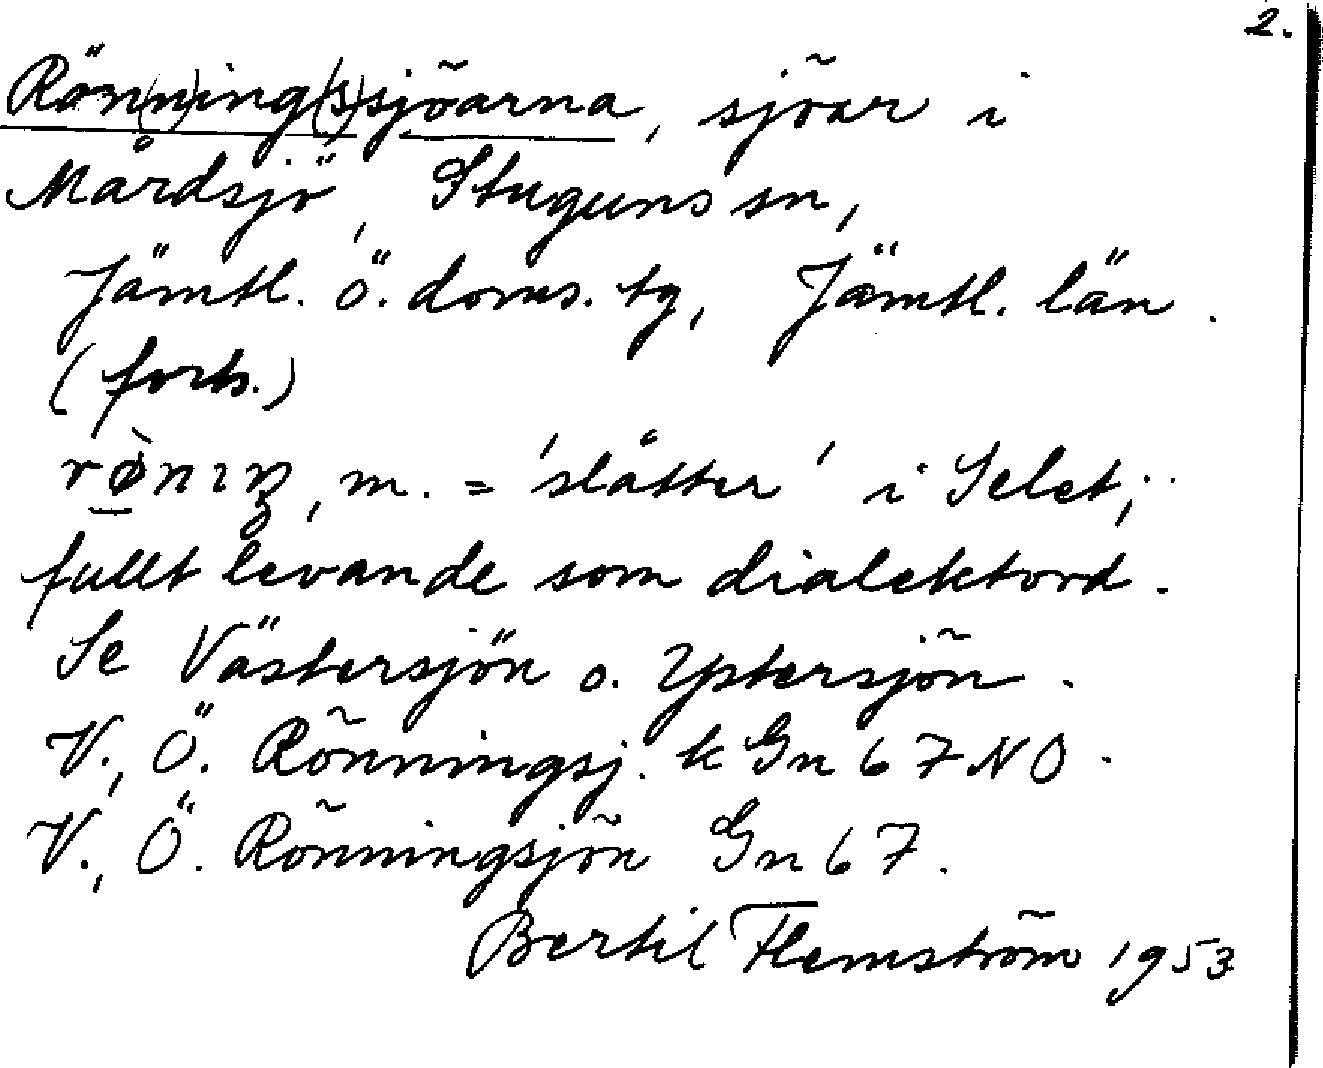 2.
Rön(n)ing(s)sjöarna, sjöar i
Mårdsjö, Stuguns sn,
Jämtl. ö. doms. tg, Jämtl. län.
(forts.)
rø̀nıŋ, m. = 'slåtter' i Selet;
fullt levande som dialektord.
Se Västersjön o. Yttersjön.
V., Ö. Rönningsj. k Gn 67 NO.
V., Ö. Rönningsjön Gn 67.
Bertil Flemström 1953